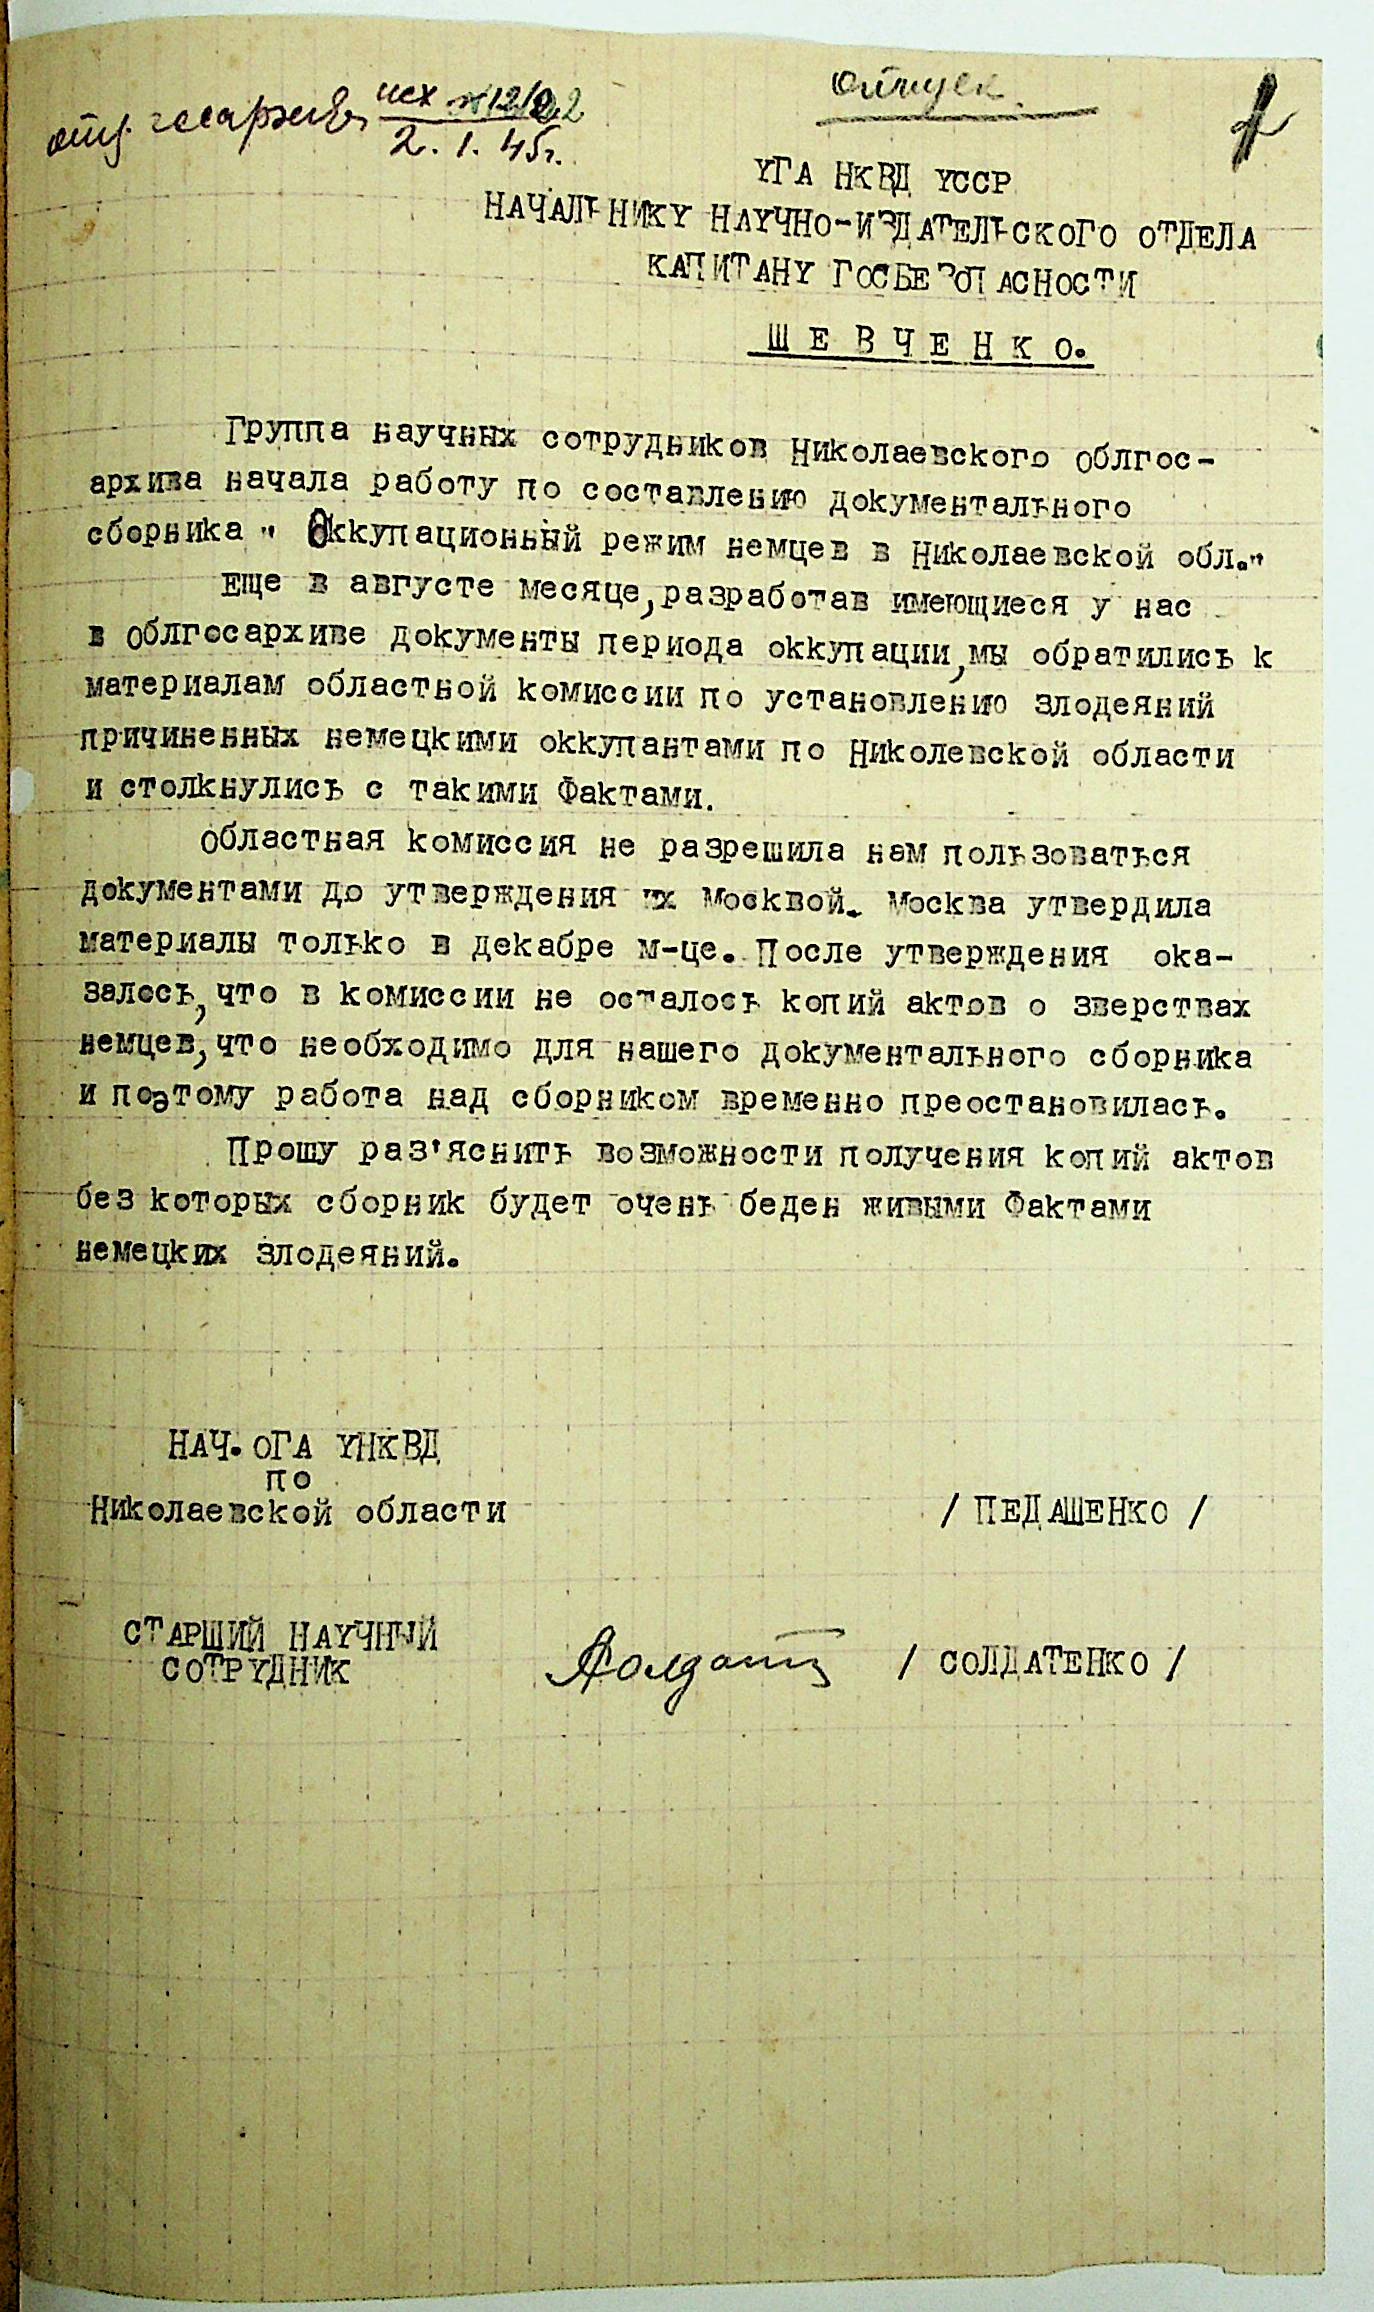 отпуск.
отд. госархивов исх №12/022
2. 1. 45г.
УГА НКВД УССР
НАЧАЛЬНИКУ НАУЧНО-ИЗДАТЕЛЬСКОГО ОТДЕЛА
КАПИТАНУ ГОСБЕЗОПАСНОСТИ
ШЕВЧЕНКО.
Группа научных сотрудников Николаевского облгос-
архива начала работу по составлению документального
сборника " Оккупационный режим немцев в Николаевской обл."
Еще в августе месяце, разработав имеющиеся у нас
в облгосархиве документы периода оккупации, мы обратились к
материалам областной комиссии по установлению злодеяний
причиненных немецкими оккупантами по Николевской области
и столкнулись с такими Фактами.
Областная комиссия не разрешила нам пользоваться
документами до утверждения их Москвой. Москва утвердила
материалы только в декабре м-це. После утверждения ока-
залось, что в комиссии не осталось копий актов о зверствах
немцев, что необходимо для нашего документального сборника
и поэтому работа над сборником временно преостановилась.
Прошу раз'яснить возможности получения копий актов
без которых сборник будет очень беден живыми Фактами
немецких злодеяний.
НАЧ. ОГА УНКВД
по
Николаевской области / ПЕДАШЕНКО /
СТАРШИЙ НАУЧНЫЙ
СОТРУДНИК / СОЛДАТЕНКО /